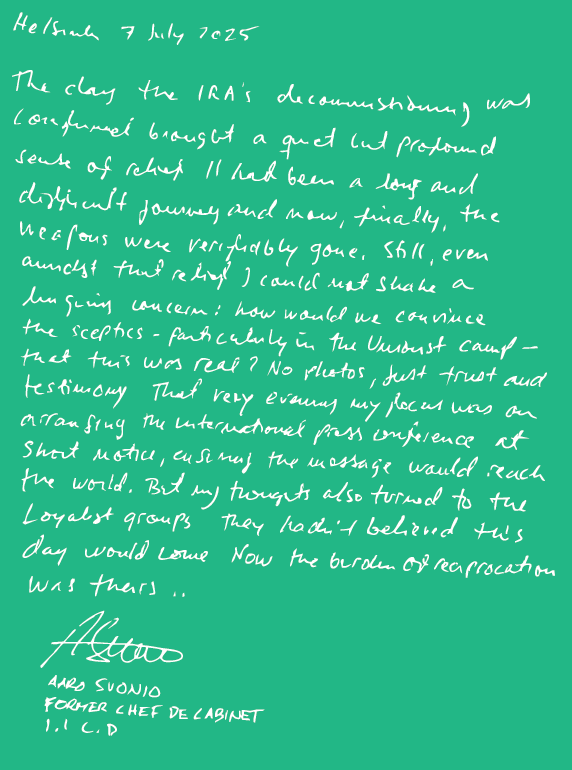 Helsinki 7 July 2025
The day the IRA's decommissioning was
confirmed brought a quiet but profound
sense of relief It had been a long and
difficult journey and now, finally, the
weapons were verifiably gone. Still, even
amidst that relief I could not shake a
lingering concern: how would we convince
the sceptics - particularly in the Unionist camp -
that this was real? No photos, just trust and
testimony That very evening my focus was on
arranging the international press conference at
short notice, ensuring the message would reach
the world. But my thoughts also turned to the
Loyalist groups They hadn't believed this
day would come Now the burden of reciprocation
was theirs ..
AARO SUONIO
FORMER CHEF DE CABINET
I.I C.D